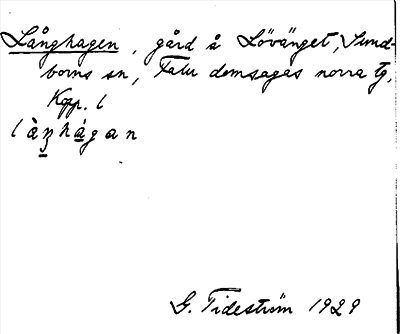 Långhagen, gård å Lövänget, Sund-
borns sn, Falu domsagas norra tg,
Kopp. l
làŋhágan
G. Tideström 1929